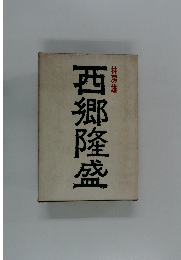 林房雄
西郷隆盛